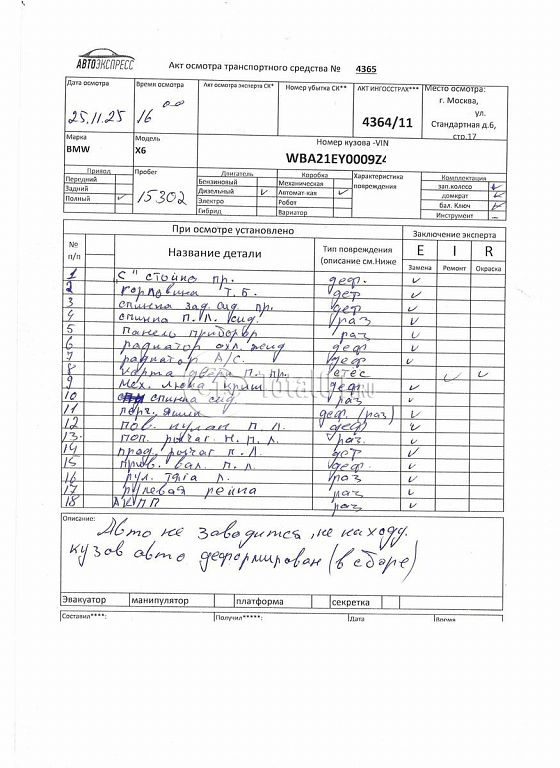 АВТОЭКСПРЕСС
Акт осмотра транспортного средства № 4365
Дата осмотра
Время осмотра
Акт осмотра эксперта СК*
Номер убытка СК**
АКТ ИНГОССТРАХ***
Место осмотра:
25.11.25
16 00
4364/11
г. Москва,
ул.
Стандартная д.6,
стр.17
Марка
Модель
Номер кузова -VIN
BMW
X6
WBA21EY0009Z4
Привод
Пробег
Двигатель
Коробка
Характеристика повреждения
Комплектация
Передний
15302
Бензиновый
Механическая
зап.колесо ✓
Задний
Дизельный ✓
Автомат-кая ✓
домкрат ✓
Полный ✓
Электро
Робот
бал. Ключ ✓
Гибрид
Вариатор
Инструмент –
При осмотре установлено
Заключение эксперта
№ п/п
Название детали
Тип повреждения (описание см.Ниже
E I R
Замена Ремонт Окраска
1 "С" стойка пр. деф. ✓
2 горловина Т.Б. деф ✓
3 спинка зад. сид. пр. деф ✓
4 спинка п.л. сид. раз ✓
5 панель приборов раз ✓
6 радиатор охл. жид деф ✓
7 радиатор А/С. деф ✓
8 карта двери п. пр. стес ✓ ✓
9 мех. люка крыш. деф. ✓
10 спинка сид раз ✓
11 перч. ящик деф. (раз) ✓
12 пов. кулак п.л. деф ✓
13. поп. рычаг н.п.л. раз. ✓
14 прод. рычаг п.л. деф ✓
15 прив. вал. п.л. деф. ✓
16 рул. тяга л. раз ✓
17 рулевая рейка раз ✓
18 АКПП раз ✓
Описание:
Авто не заводится, не на ходу.
кузов авто деформирован (в сборе)
Эвакуатор
манипулятор
платформа
секретка
Составил****:
Получил*****:
Дата
Время